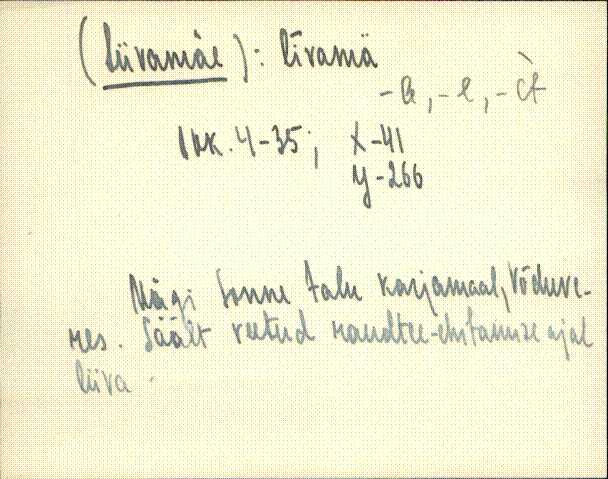 (Liivamäe): līvamä
-le, -l, -lt
Vkk. 4-35; x-41
y-266
Mägi Sonni talu karjamaal, Võduve-
res. Säält veetud raudtee-ehitamise ajal
liiva.